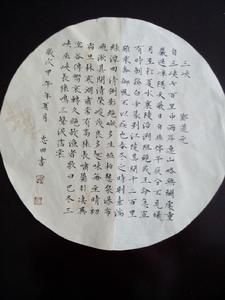 三峽 酈道元
自三峽七百里中两岸連山略無闕處重
巖疊嶂隱天蔽日自非停午夜分不見曦
月至於夏水襄陵沿溯阻絕或王命急宣
有時朝發白帝暮到江陵其間千二百里
雖乘奔御風不以疾也春冬之時則素湍
綠潭回清倒影絕巘多生怪柏懸泉瀑布
飛漱其間清榮峻茂良多趣味每至晴初
霜旦林寒澗肅常有高猿長嘯屬引淒異
空谷傳響哀轉久絕故漁者歌曰巴東三
峽巫峽長猿鳴三聲淚沾裳
歲次甲午年夏月 忠田書